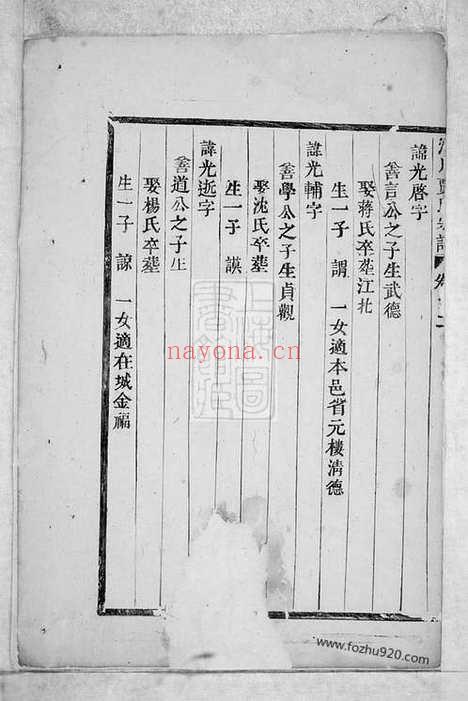 諱光啓字
善言公之子生武德
娶蔣氏卒塟江北
生一子 謂 一女適本邑省元樓淸德
諱光輔字
善學公之子生貞觀
娶沈氏卒塟
生一子 謨
諱光逝字
善道公之子生
娶楊氏卒塟
生一子 諒 一女適在城金福
nayona.cn
www.fozhu920.com